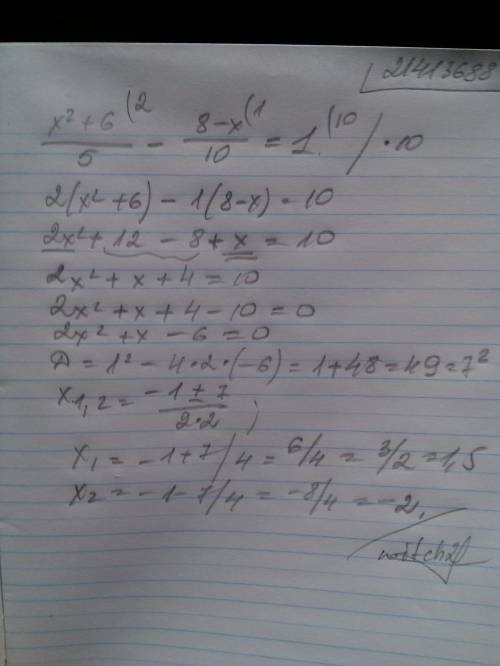 21413688
x²+6 (2 / 5 - 8-x (1 / 10 = 1 (10 / ·10
2(x²+6) - 1(8-x) = 10
2x²+12-8+x=10
2x²+x+4=10
2x²+x+4-10=0
2x²+x-6=0
D=1²-4·2·(-6)=1+48=49=7²
x1,2 = -1±7 / 2·2 ;
x₁=-1+7/4=6/4=3/2=1,5
x₂=-1-7/4=-8/4=-2.